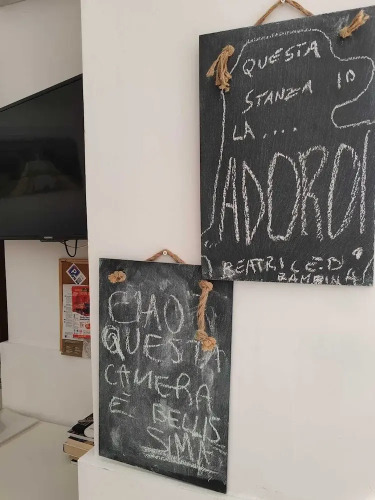 QUESTA
STANZA IO
LA....
ADORO!
BEATRICE D.
BAMBINA
CIAO
QUESTA
CAMERA
E BELLIS
SIMA
P